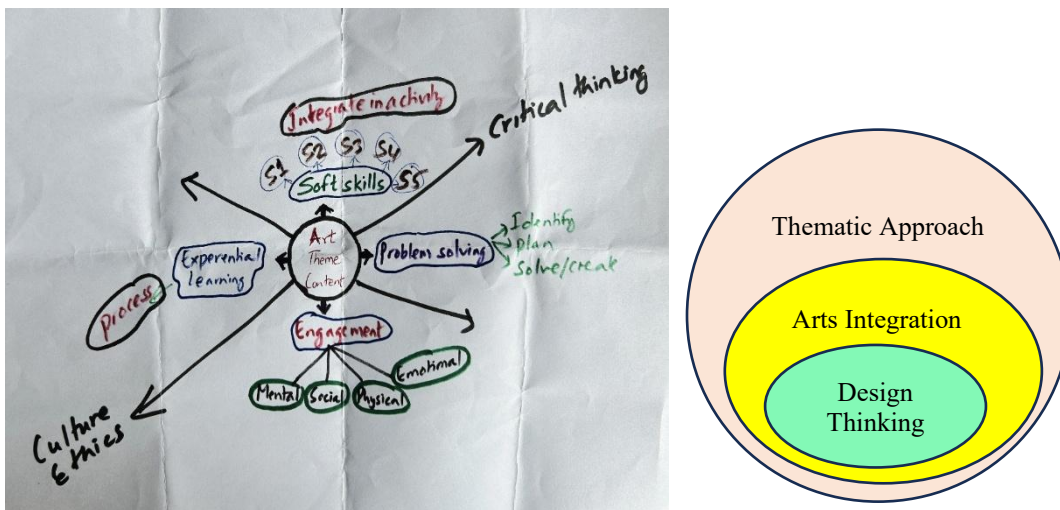 Integrate in activity
Critical thinking
S1 S2 S3 S4 S5
Soft skills
Art
Theme
Content
Experential
Learning
Process
Problem solving
Identify
Plan
Solve/create
Engagement
Mental
Social
Physical
Emotional
Culture
Ethics
Thematic Approach
Arts Integration
Design
Thinking